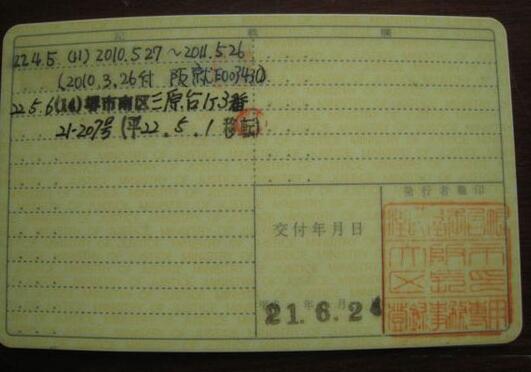 記載欄
22.4.5 (11) 2010.5.27～2011.5.26
(2010.3.26付 阪
22.5.6 (14) 堺市南区三原台1丁3番
21-207号 (平22.5.1 移転)
発行者職印
交付年月日
21.6.2